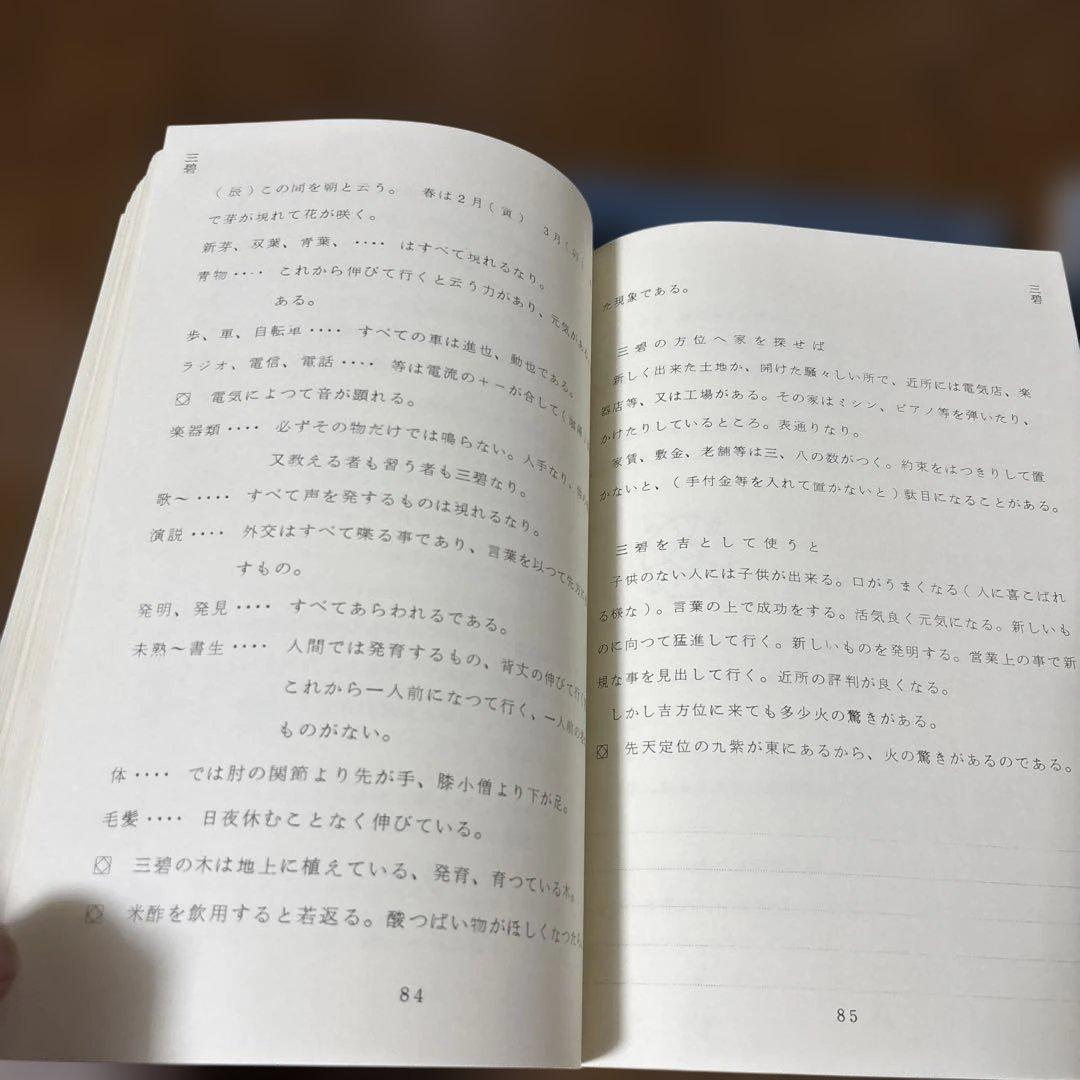 三碧
（辰）この間を朝と云う。　春は２月（寅）　３月（卯）
で芽が現れて花が咲く。
新芽、双葉、青葉、‥‥　はすべて現れるなり。
青物‥‥　これから伸びて行くと云う力があり、元気が
ある。
歩、車、自転車‥‥　すべての車は進也、動也である。
ラジオ、電信、電話‥‥　等は電流の＋－が合して
電気によつて音が顕れる。
楽器類‥‥　必ずその物だけでは鳴らない。人手なり、
又教える者も習う者も三碧なり。
歌～‥‥　すべて声を発するものは現れるなり。
演説‥‥　外交はすべて喋る事であり、言葉を以つて先方に
すもの。
発明、発見‥‥　すべてあらわれるである。
未熟～書生‥‥　人間では発育するもの、背丈の伸びて行く
これから一人前になつて行く、一人前の
ものがない。
体‥‥　では肘の関節より先が手、膝小僧より下が足。
毛髪‥‥　日夜休むことなく伸びている。
三碧の木は地上に植えている、発育、育つている木。
米酢を飲用すると若返る。酸つぱい物がほしくなつたら
84
三碧
た現象である。
三碧の方位へ家を探せば
新しく出来た土地か、開けた騒々しい所で、近所には電気店、楽
器店等、又は工場がある。その家はミシン、ピアノ等を弾いたり、
かけたりしているところ。表通りなり。
家賃、敷金、老舗等は三、八の数がつく。約束をはつきりして置
かないと、（手付金等を入れて置かないと）駄目になることがある。
三碧を吉として使うと
子供のない人には子供が出来る。口がうまくなる（人に喜こばれ
る様な）。言葉の上で成功をする。活気良く元気になる。新しいも
のに向つて猛進して行く。新しいものを発明する。営業上の事で新
規な事を見出して行く。近所の評判が良くなる。
しかし吉方位に来ても多少火の驚きがある。
先天定位の九紫が東にあるから、火の驚きがあるのである。
85